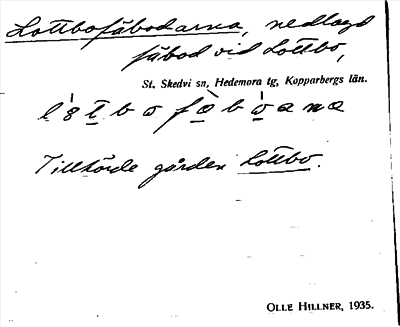 Lottbofäbodarna, nedlagd
fäbod vid Lottbo,
St. Skedvi sn, Hedemora tg, Kopparbergs län.
Tillhörde gården Lottbo.
OLLE HILLNER, 1935.